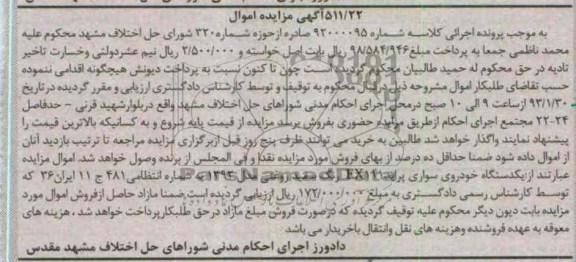 ۵۱۱/۲۲آگهی مزایده اموال
به موجب پرونده اجرائی کلاسه شماره ۹۲۰۰۰۰۹۵ صادره ازحوزه شماره۳۲۰ شورای حل اختلاف مشهد محکوم علیه
محمد ناظمی جمعا به پرداخت مبلغ۹۸/۵۸۴/۹۴۶ ریال بابت اصل خواسته و ۲/۵۰۰/۰۰۰ ریال نیم عشردولتی وخسارت تاخیر
تادیه در حق محکوم له حمید طالبیان محکوم است چون تا کنون نسبت به پرداخت دیونش هیچگونه اقدامی ننموده
حسب تقاضای طلبکار اموال مشروحه ذیل محکوم به توقیف و توسط کارشناس دادگستری ارزیابی و مقرر گردیده درتاریخ
۹۳/۱/۳۰ ازساعت ۹ الی ۱۰ صبح درمحل اجرای احکام مدنی شوراهای حل اختلاف مشهد واقع دربلوارشهید قرنی – حدفاصل
۲۲-۲۴ مجتمع اجرای احکام ازطریق مزایده حضوری بفروش برسد مزایده از قیمت پایه شروع و به کسانیکه بالاترین قیمت را
پیشنهاد نمایند واگذار خواهد شد طالبین به خرید می توانند ظرف پنج روز قبل ازبرگزاری مزایده مراجعه تا ترتیب بازدید آنان
از اموال داده شود ضمنا حداقل ده درصد از بهای فروش مورد مزایده نقدا و فی المجلس از برنده وصول خواهد شد. اموال مزایده
عبارتند ازیکدستگاه خودروی سواری پراید شماره انتظامی۴۸۱ ج ۱۱ ایران۳۶ که
توسط کارشناس رسمی دادگستری به مبلغ ۱۷۲/۰۰۰/۰۰۰ ریال ارزیابی گردیده است.ضمنا مازاد حاصل ازفروش اموال مورد
مزایده بابت دیون دیگر محکوم علیه توقیف گردیده که درصورت فروش مبلغ مازاد درحق طلبکارپرداخت خواهد شد ، هزینه های
معوقه به عهده فروشنده وهزینه های نقل وانتقال باخریدار می باشد
دادورز اجرای احکام مدنی شوراهای حل اختلاف مشهد مقدس